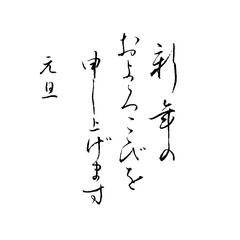 新年の
およろこびを
申し上げます
元旦